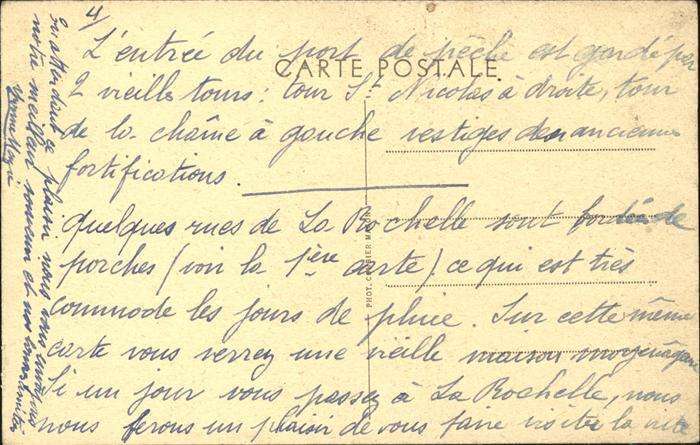 4/
L'entrée du port de pêche est gardé par
CARTE POSTALE
2 vieille tours : tour St Nicolas à droite, tour
de la chaîne à gauche vestiges des anciennes
fortifications.
quelques rues de La Rochelle sont bordées de
porches (voir la 1ère carte) ce qui est très
commode les jours de pluie. Sur cette même
carte vous verrez une vieille maison moyenâgeuse
Si un jour vous passez à La Rochelle, nous
nous ferons un plaisir de vous faire visiter la ville
En attendant ce plaisir nous vous envoyons
notre meilleur souvenir et nos
PHOT.